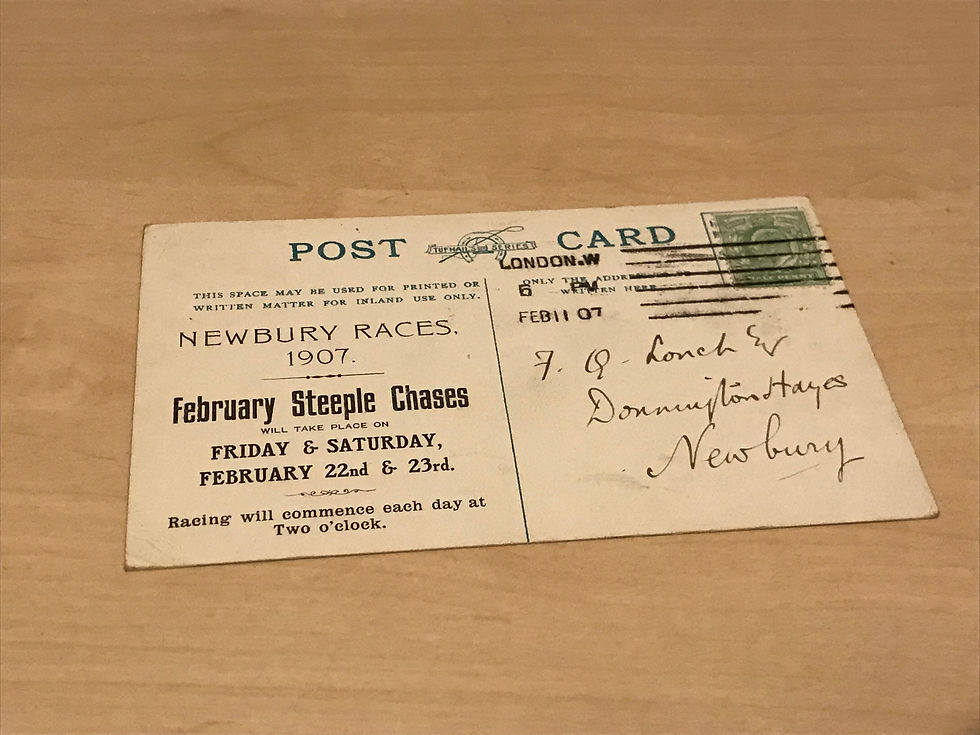 POST CARD
THIS SPACE MAY BE USED FOR PRINTED OR
WRITTEN MATTER FOR INLAND USE ONLY.
NEWBURY RACES,
1907.
February Steeple Chases
WILL TAKE PLACE ON
FRIDAY & SATURDAY,
FEBRUARY 22nd & 23rd.
Racing will commence each day at
Two o'clock.
LONDON.W
6 PM
FEB 11 07
ONLY THE ADDRE
WRITTEN HERE
F. Q. Lonch Esq
Donnington Hayes
Newbury